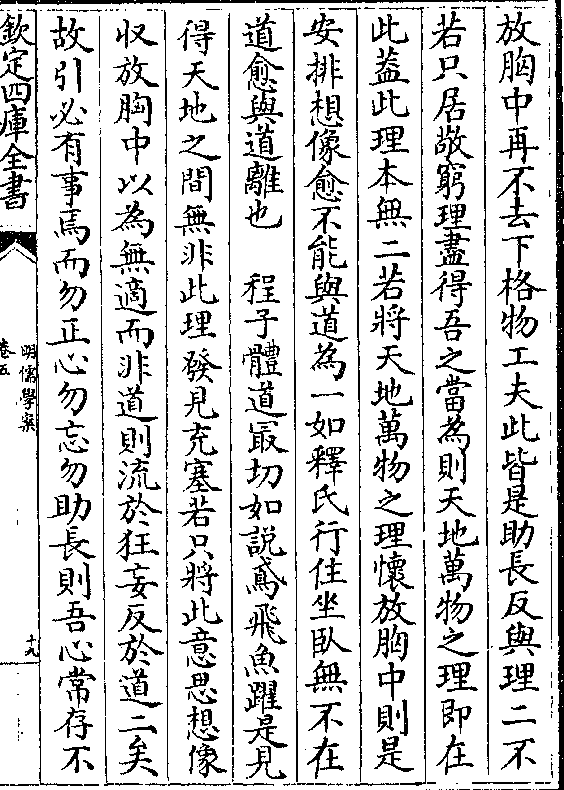 放胸中再不去下格物工夫此皆是助長反與理二不
若只居敬窮理盡得吾之當為則天地萬物之理即在
此蓋此理本無二若將天地萬物之理懷放胸中則是
安排想像愈不能與道為一如釋氏行住坐臥無不在
道愈與道離也　程子體道最切如説鳶飛魚躍是見
得天地之間無非此理發見充塞若只將此意思想像
収放胸中以為無適而非道則流於狂妄反於道二矣
故引必有事焉而勿正心勿忘勿助長則吾心常存不
欽定四庫全書
明儒學案
卷五
十九